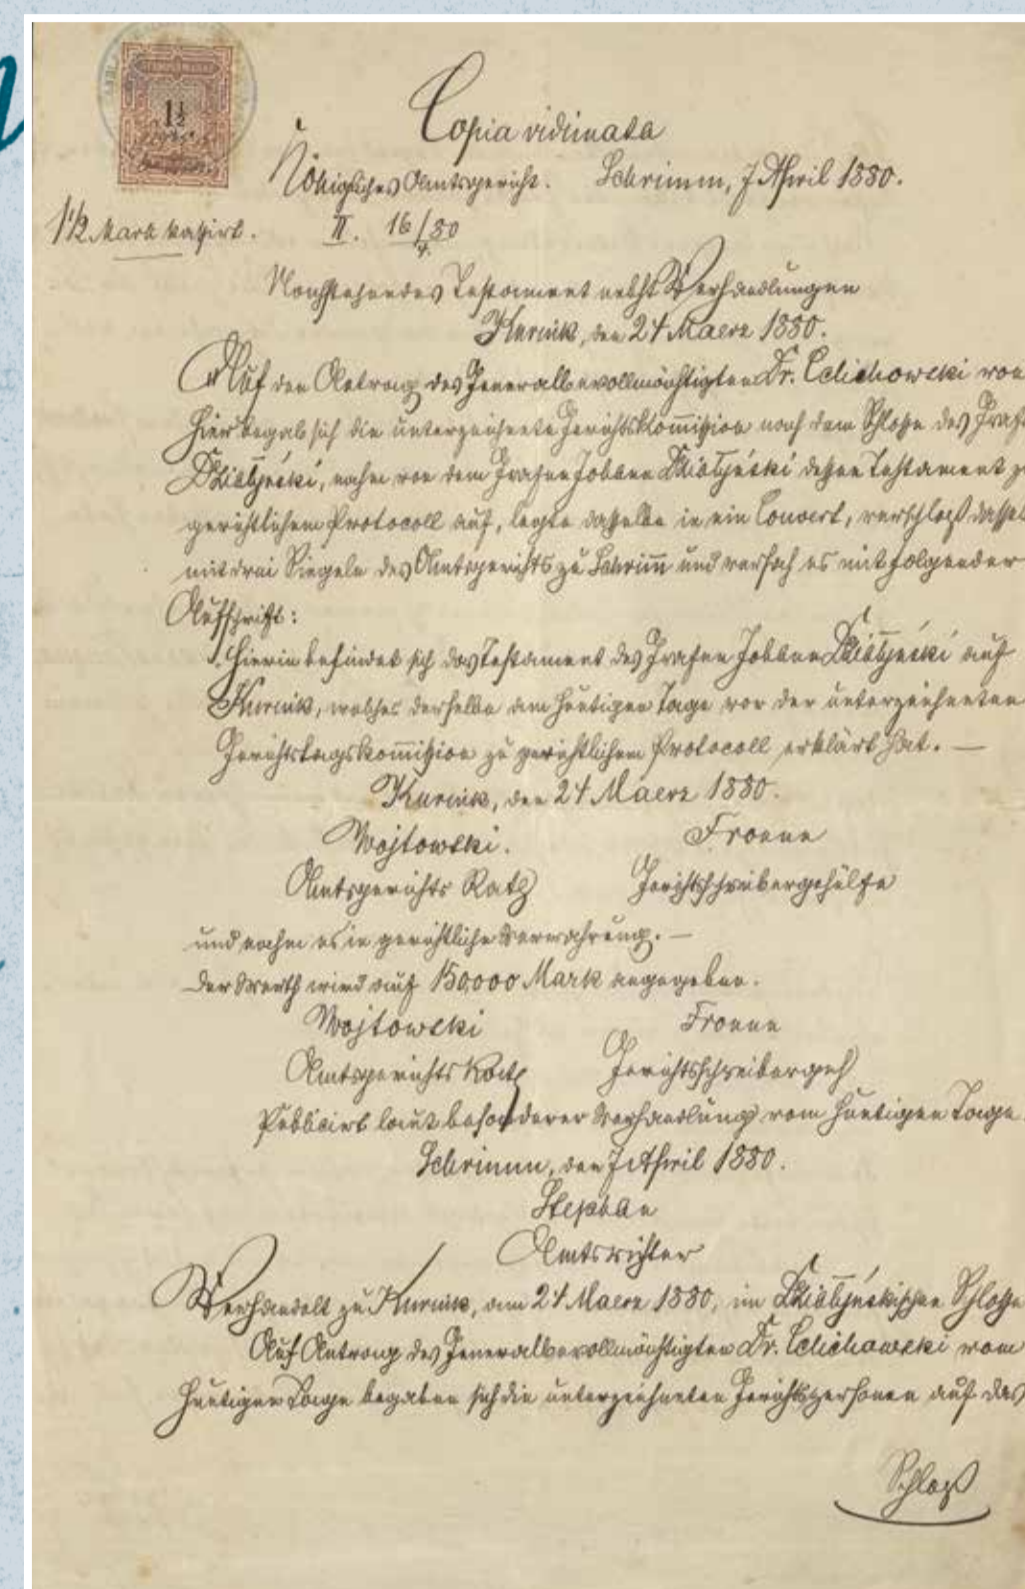 STEMPELMARKE
1½
Copia vidimata
Königliches Amtsgericht. Schrimm, 7 April 1880.
1½ Mark kassirt. II. 16/80
4.
Nachstehendes Testament nebst Verhandlungen
Kurnik, den 24 Maerz 1880.
Auf den Antrag des Generalbevollmächtigten Dr. Celichowski von
hier begab sich die unterzeichnete Gerichtskom̄ission nach dem Schlosse des Graf
Działyński, nahm von dem Grafen Johann Działyński dessen Testament z
gerichtlichem Protocoll auf, legte dasselbe in ein Convert, verschloß dassel
mit drei Siegeln des Amtsgerichts zu Schrim̄ und versah es mit folgender
Aufschrift:
Hierin befindet sich das Testament des Grafen Johann Działyński auf
Kurnik, welches derselbe am heutigen Tage vor der unterzeichneten
Gerichtstagskom̄ission zu gerichtlichem Protocoll erklärt hat. —
Kurnik, den 24 Maerz 1880.
Wojtowski. Froene
Amtsgerichts Rath Gerichtsschreibergehülfe
und nahm es in gerichtliche Verwahrung. —
Der Werth wird auf 150,000 Mark angegeben.
Wojtowski Froene
Amtsgerichts Rath Gerichtsschreibergeh
Publicirt laut besonderer Verhandlung vom heutigen Tage.
Schrimm, den 7 April 1880.
Stephan
Amtsrichter
Verhandelt zu Kurnik, am 24 Maerz 1880, im Działyńskischen Schlosse
Auf Antrag des Generalbevollmächtigten Dr. Celichowski vom
heutigen Tage begaben sich die unterzeichneten Gerichtspersonen auf das
Schloß